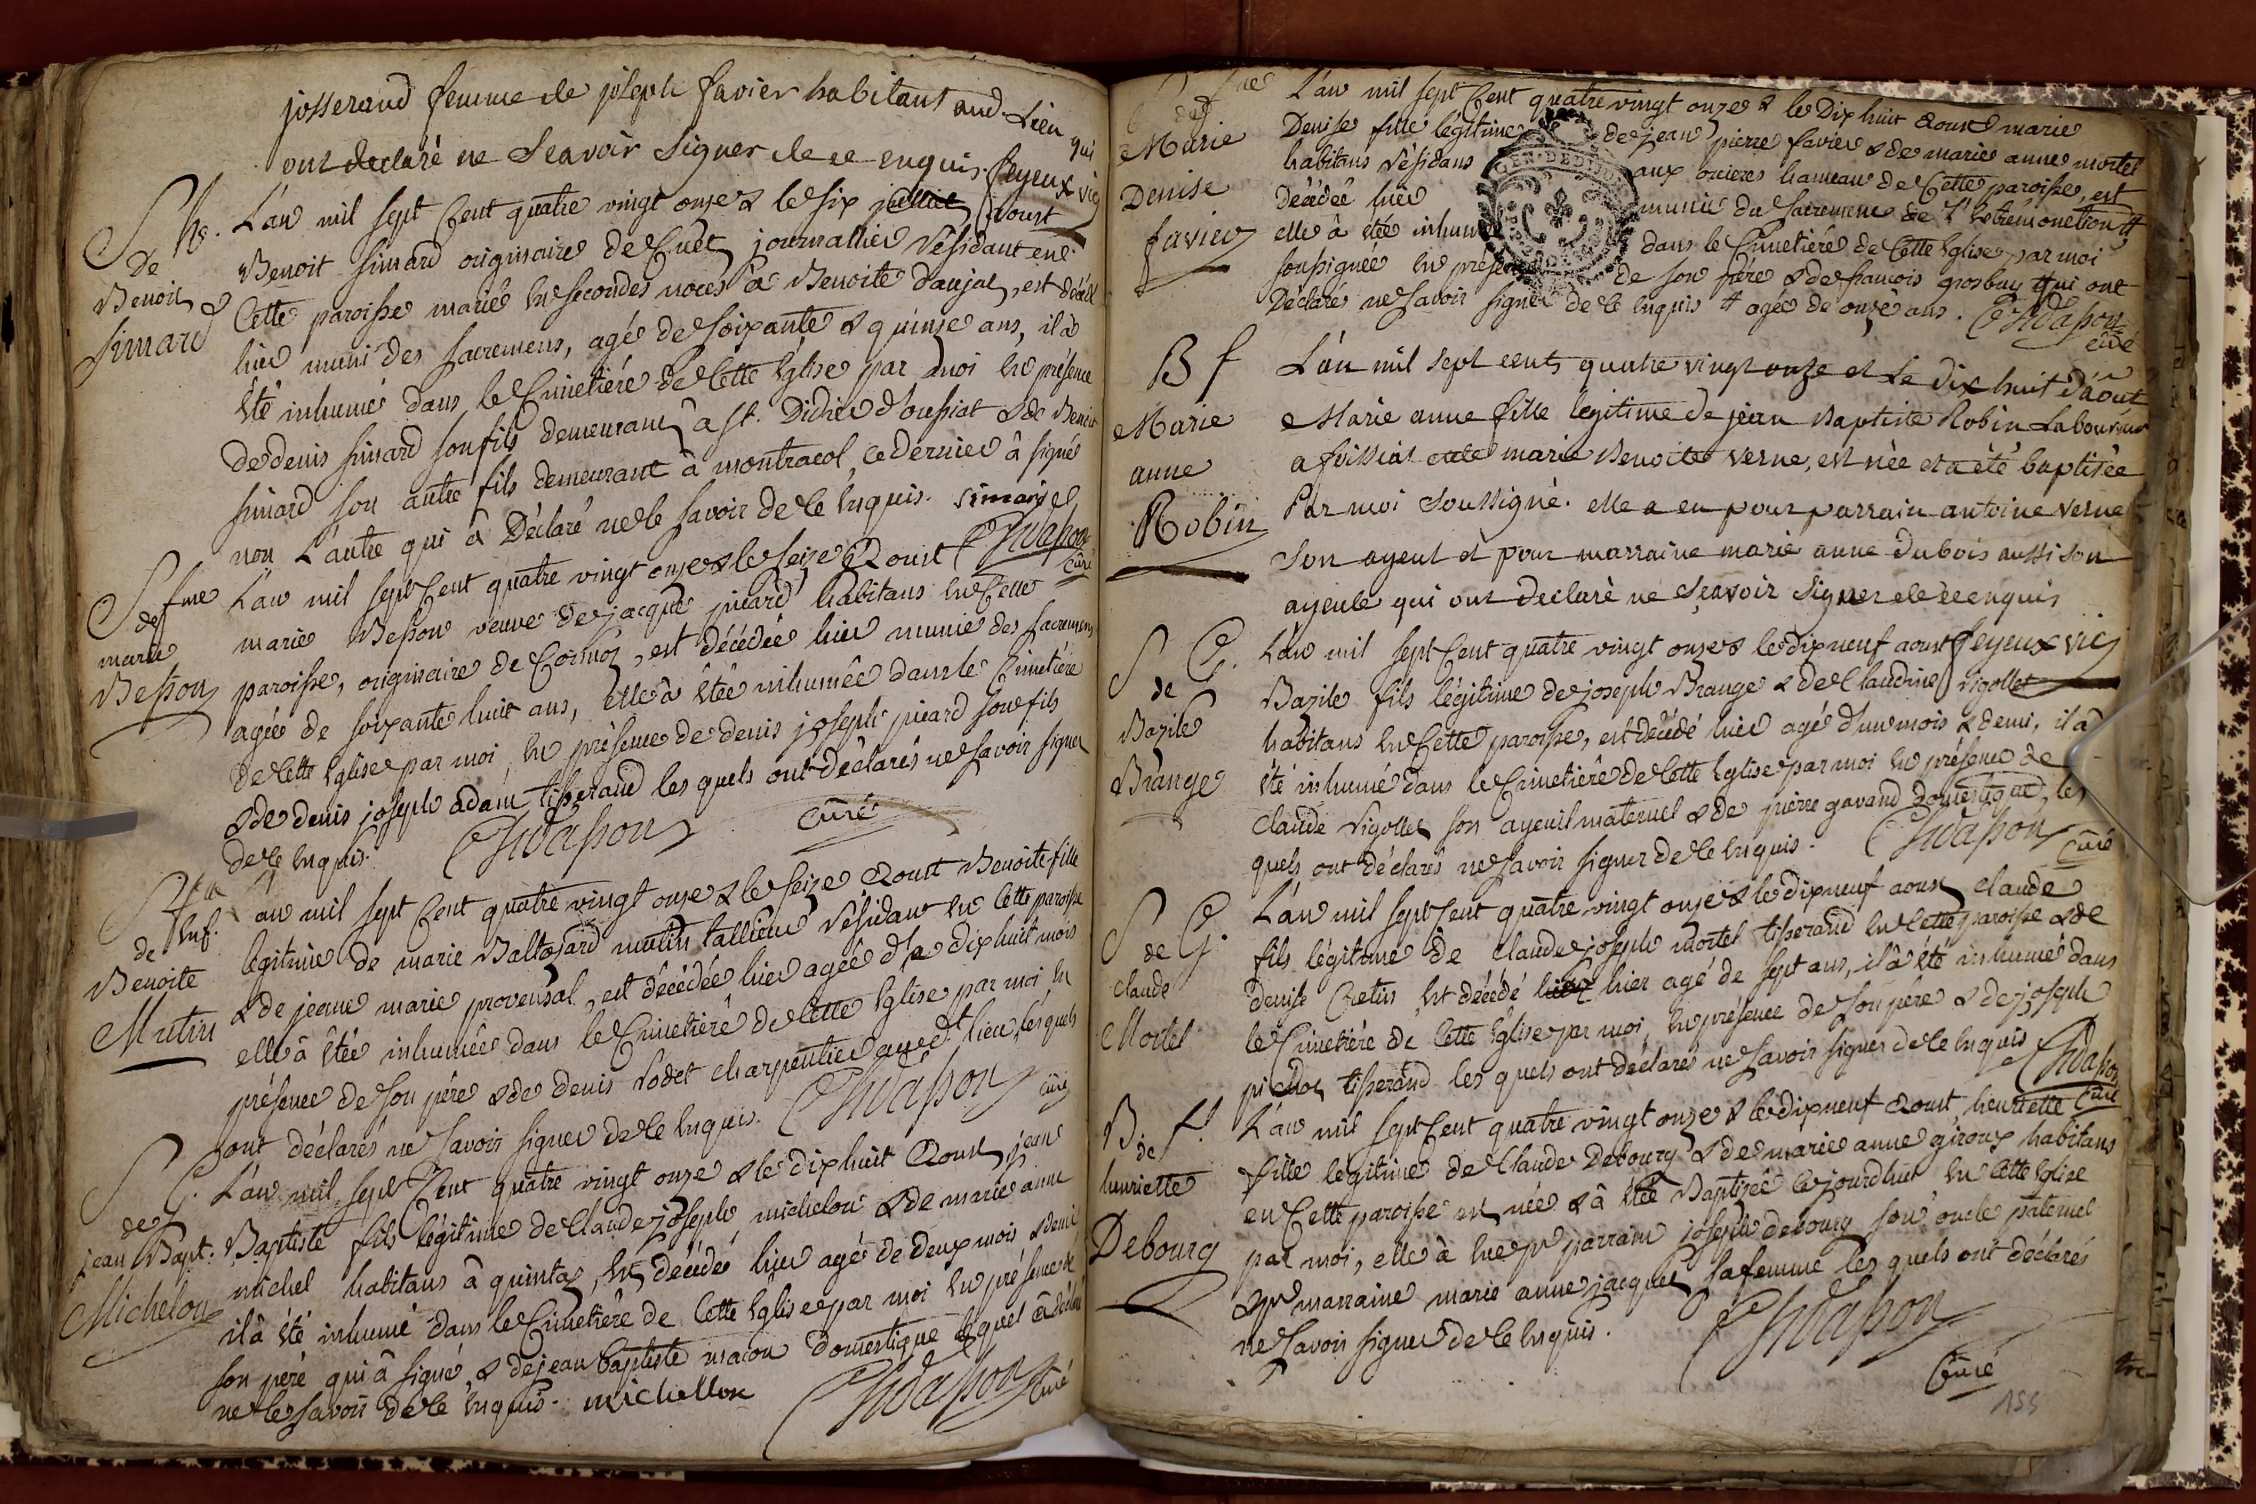 josserand femme de joseph favier habitant aud. Lieu qui
ont declaré ne Scavoir Signer de ce enquis. feyeux vic
S h.
de
Benoit
Simard
L'an mil sept Cent quatre vingt onze & le six juillet Aoust
Benoit simard originaire de Cuet journallier Résidant en
Cette paroisse marié En secondes noces à Benoite daujat, est décédé
hier muni des sacremens, agée de soixante & quinze ans, il à
été inhumé dans le Cimetiére de Cette Eglise par moi En présence
de denis simard son fils demeurant à st. Didier d'oussiat & de Benoit
simard son autre fils demeurant à montracol, ce dernier à signé
non L'autre qui à Déclaré ne le savoir de ce Enquis. simard
ChVasson
Curé
S fme
de
marie
Besson
L'an mil sept Cent quatre vingt onze & le seize Aoust
marie Besson veuve de jacque picard habitans En Cette
paroisse, originaire de Cormoz, est décédée hier munie des sacremens
agée de soixante huit ans, elle à étée inhumée dans le Cimetiére
de Cette Eglise par moi En présence de denis joseph picard son fils
& de denis joseph adam tisserand les quels ont déclarés ne savoir signer
de ce Enquis. Chvasson curé
S fa
Enf.
de
Benoite
Mutin
L'an mil sept Cent quatre vingt onze & le seize Aoust Benoite fille
légitime de marie Baltazard mutin tallieur Résidant En Cette paroisse
& de jeanne marie provensal, est décédée hier agée de dix huit mois
elle à étée inhumée dans le Cimetiére de Cette Eglise par moi En
présence de son père & de denis Rodet charpentier aud.t lieu, lesquels
ont déclarés ne savoir signer de ce Enquis. Chvasson curé
S G.
de
jean Bapt.
Michelon
L'an mil sept Cent quatre vingt onze & le dix huit Aoust jean
Baptiste fils légitime de Claude joseph michelon & de marie anne
michel habitans à quintas, Est décédé hier agé de deux mois & demi
il à été inhumé dans le Cimetiére de Cette Eglise par moi En présence de
son pére qui à signé, & de jean baptiste macon domestique lequel à déclaré
ne le savoir de ce Enquis. michellon Chvasson curé
fme
de
Marie
Denise
favier
L'an mil sept Cent quatre vingt onze & le Dix huit Aoust marie
Denise fille légitime de jean pierre favier & de marie anne mortel
habitans Résidans aux orcieres hameau de Cette paroisse, est
Décédée hier munie du sacrement de L'Extrêmonction #
elle à étée inhumée dans le Cimetiére de Cette Eglise par moi
soussignée En présence de son pére & de francois grosbuy qui ont
Déclarés ne savoir signer de ce Enquis # agée de onze ans. Chvasson
curé
B f
Marie
anne
Robin
L'an mil sept cent quatre vingt onze et Le dix huit d'aôut
Marie anne fille legitime de jean Baptiste Robin Laboureur
a foissiat et de marie Benoite verne, est née et a été baptisée
Par moi Soussigné. elle a eu pour parrain antoine verne
Son ayeul et pour marraine marie anne Dubois aussi son
ayeule qui ont declaré ne Sçavoir Signer de ce enquis
feyeux vic
S G.
de
Bazile
Brange
L'an mil sept Cent quatre vingt onze & le dix neuf aoust
Bazile fils légitime de joseph Brange & de Claudine Vigollet
habitans En Cette paroisse, est décédé hier agé d'un mois & demi, il à
été inhumé dans le Cimetière de Cette Eglise par moi En présence de
Claude Vigollet son ayeuil maternel & de pierre gavand domestique, les
quels ont déclarés ne savoir signer de ce Enquis. Chvasson curé
S G.
de
Claude
Mortel
L'an mil sept Cent quatre vingt onze & le dix neuf aoust claude
fils légitime de claude joseph mortel tisserand En Cette paroisse & de
denise Cretin, Est décédé hier hier agé de sept ans, il à été inhumé dans
le Cimetiére de Cette Eglise par moi En présence de son pére & de joseph
tisserand les quels ont déclarés ne savoir signer de ce Enquis Chvasson
curé
B f.
de
henriette
Debourg
L'an mil sept Cent quatre vingt onze & le dix neuf Aoust, henriette
fille légitime de Claude Debourg & de marie anne giroux habitans
en Cette paroisse est née & à étée Baptisée Cejourdhui En Cette Eglise
par moi, elle à Eue pr parrain joseph debourg son oncle paternel
& pr marraine marie anne jacquet sa femme les quels ont déclarés
ne savoir signer de ce Enquis. Chvasson
Curé
155